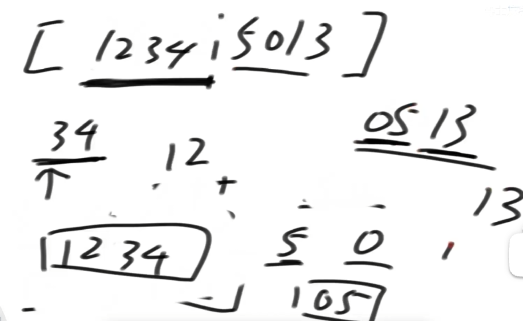 [ 1234 ; 5013 ]
34 12 0513
+ 13
1234 5 0
105